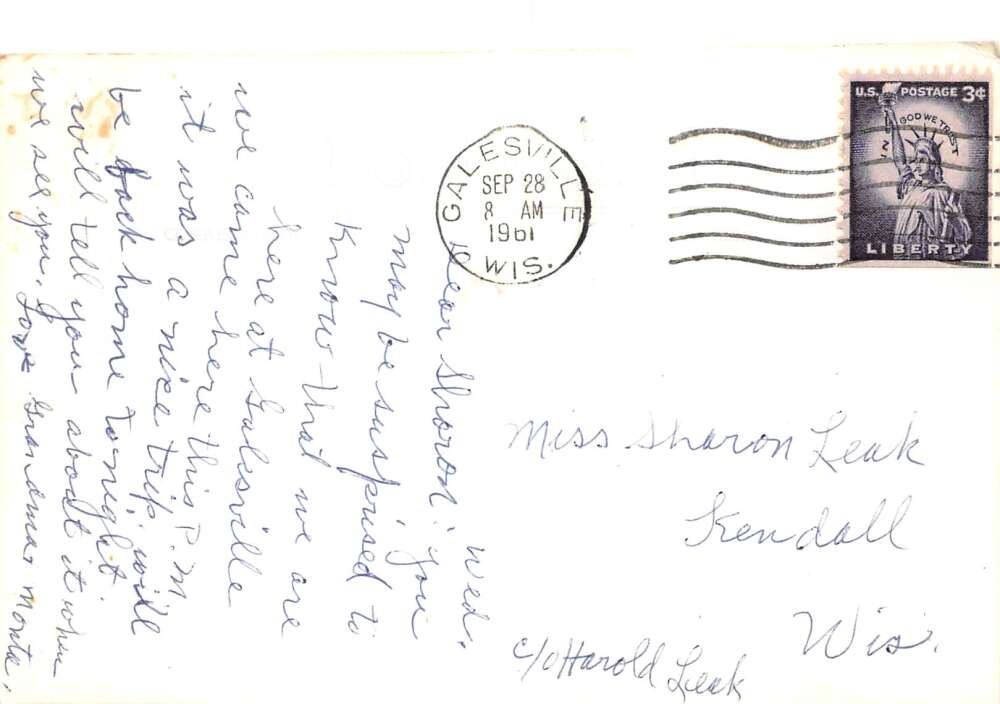 U.S. POSTAGE 3¢
IN GOD WE TRUST
LIBERTY
GALESVILLE
SEP 28
8 AM
1961
WIS.
Wed.
Dear Sharon: you
may be susprised to
Know that we are
here at Galesville
we came here this P.M.
it was a nice trip, will
be back home tonight.
will tell you about it when
we see you. Love Grandma, Monta.
Miss Sharon Leak
Kendall
Wis.
c/o Harold Leak